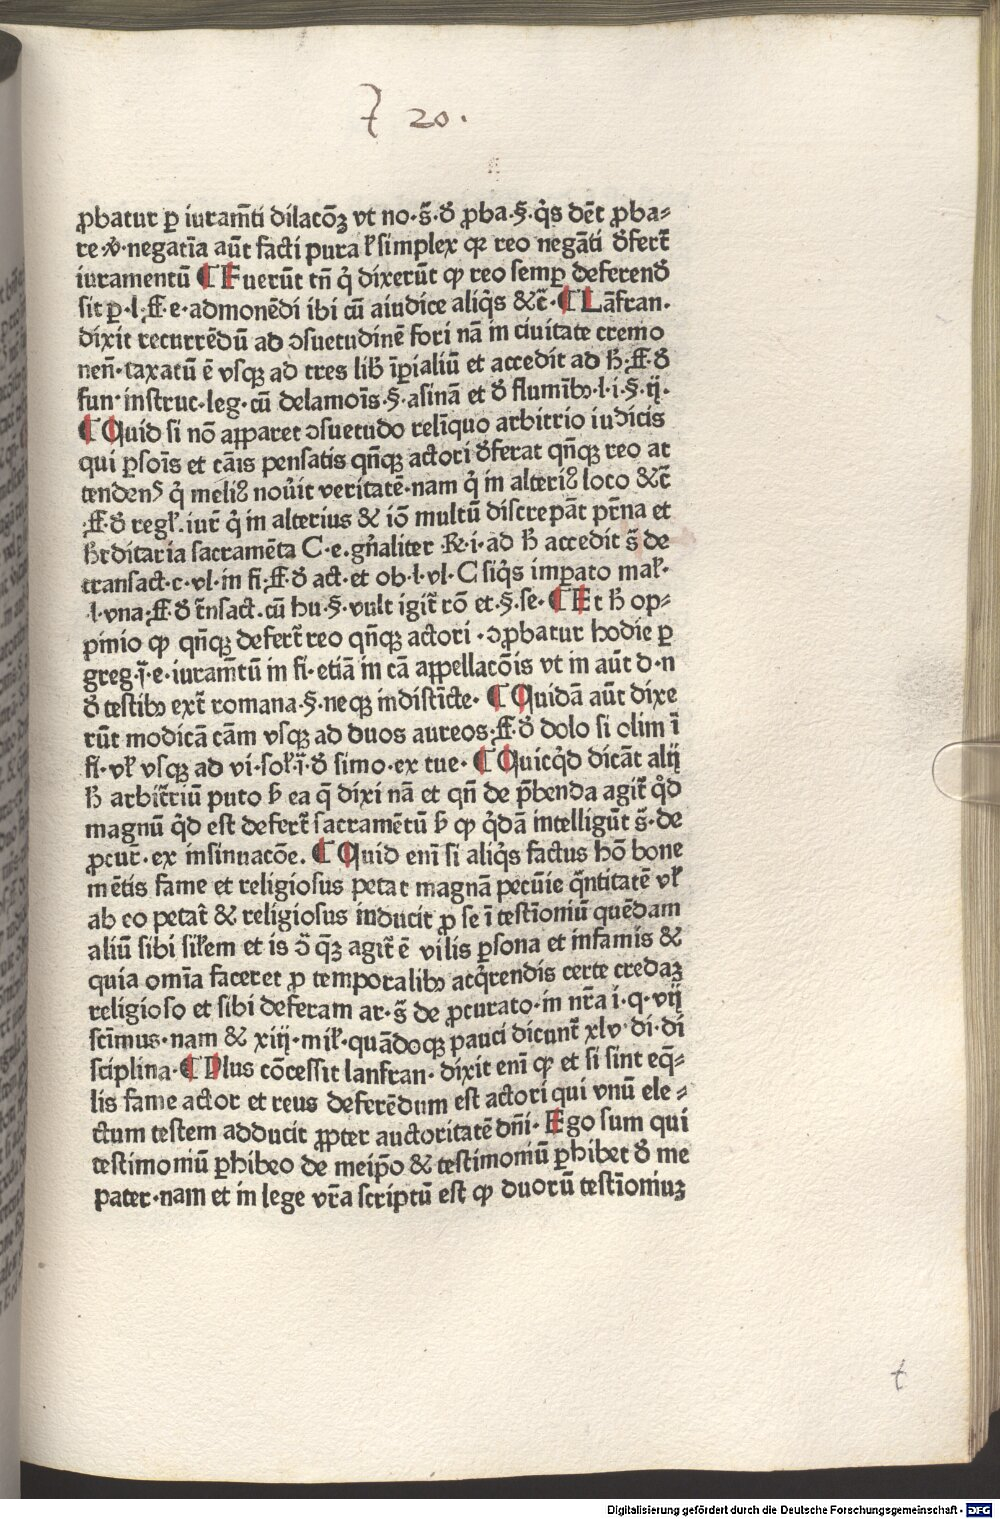 7 20.
ꝓbatur ꝑ iuram̄ti dilacōꝫ vt no·s̄·đ ꝓba·§·q̇s dēt ꝓba⸗
re ·negatīa aūt facti pura ł simplex qꝛ reo negāti đfert̄
iuramentū ¶ Fuerūt tn̄ q̇ dixerūt ꝙ reo semꝑ deferend̄
sit ꝑ·l·ff·e·admonēdi ibi cū aiudice aliq̇s &c̄· ¶ Lāfran·
dixit recurrēdū ad ↄsuetudinē fori nā in ciuitate cremo
nen̄·taxatū ē vsqꝫ ad tres lib̄ īꝑialiū et accedit ad ħ·ff·đ
fun·instruc·leg·cū delamoīs·§·asinā et đ flumībꝫ·l·i·§·ij·
¶ Quid si nō apparet ↄsuetudo relīquo arbitrio iudicis
qui ꝑsoīs et cāis pensatis qn̄qꝫ actori đferat qn̄qꝫ reo at
tendenꝰ q̇ meliꝰ nou̇it veritatē·nam q̇ in alteriꝰ loco &c̄
·ff·đ regł·iur̄ q̇ in alterius & iō multū discrepāt pr̄na et
ħrditaria sacramēta C·e·gn̄aliter ·℞·i·ad ħ accedit s̄ de
transact·c·vl·in fi·ff·đ act·et ob·l·vl·C siq̇s imꝑato mał·
·l·vna·ff·đ t̄nsact·cū hu·§·vult igit̄ rō et·§·se· ¶ Et ħ op⸗
pinio ꝙ qn̄qꝫ defert̄ reo qn̄qꝫ actori·ↄꝓbatur hodie ꝑ
greg·j̄·e·iuram̄tū in fi·etiā in cā appellacōis vt in aūt d·n
đ testibꝫ ext̄ romana·§·neqꝫ indistīcte· ¶ Quidā aūt dixe
rūt modicā cām vsqꝫ ad duos aureos·ff·đ dolo si olim ī
fi·vł vsqꝫ ad vi·soł·j̄·đ simo·ex tue· ¶ Quicq̇d dicāt alij
ħ arbit̄riū puto ƀ ea q̄ dixi nā et qn̄ de p̄benda agit̄ q̇d
magnū q̇d est defert̄ sacramētū ƀ ꝙ q̇dā intelligūt s̄·de
ꝓcur̄·ex insinuacōe. ¶ Quid enī si aliq̇s factus hō bone
mētis fame et religiosus petat magnā pecūie q̄ntitatē vł
ab eo petat̄ & religiosus inducit ꝓ se ī testīoniū quēdam
aliū sibi siłem et is ↄ̄ q̄ꝫ agit̄ ē vilis ꝑsona et infamis &
quia omīa faceret ꝓ temporalibꝫ acq̇rendis certe credaꝫ
religioso et sibi deferam ar·s̄ de ꝓcurato·in nr̄a i·q·vij
scīmus·nam & xiij·mił·quādoqꝫ pauci dicunt̄ xlv·di·di
sciplina· ¶ Plus cōcessit lanfran·dixit enī ꝙ et si sint eq̄⸗
lis fame actor et reus deferēdum est actori qui vnū ele⸗
ctum testem adducit ꝓpter auctoritatē dn̄i· Ego sum qui
testimoniū ꝑhibeo de meip̄o & testimoniū ꝑhibet đ me
pater·nam et in lege vr̄a scriptū est ꝙ duorū testīoniuꝫ
t
Digitalisierung gefördert durch die Deutsche Forschungsgemeinschaft - DFG